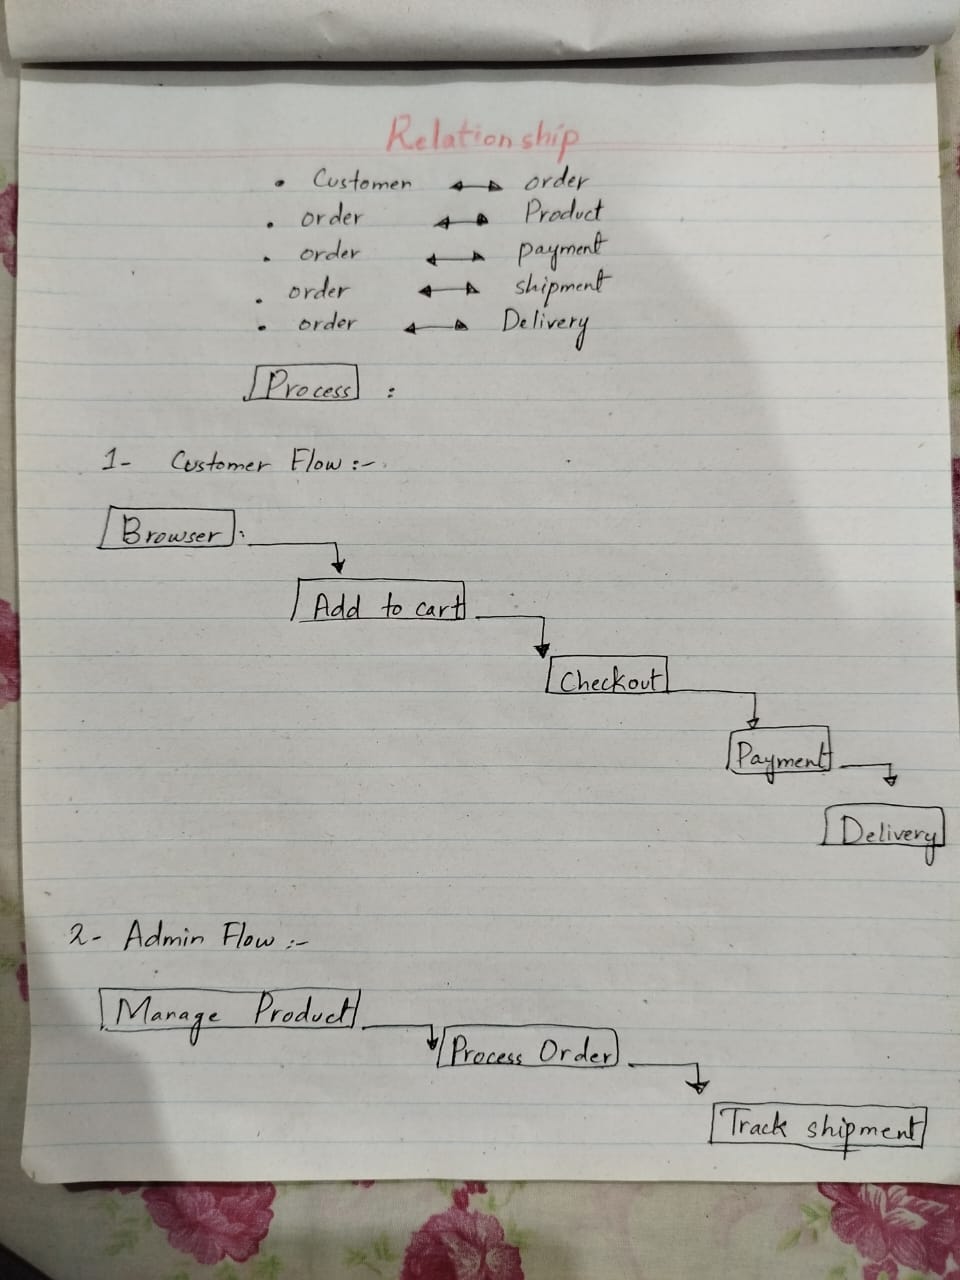 Relationship
• Customer ↔ order
• order ↔ Product
• order ↔ payment
• order ↔ shipment
• order ↔ Delivery
Process :
1- Customer Flow :-
Browser
Add to cart
Checkout
Payment
Delivery
2- Admin Flow :-
Manage Product
Process Order
Track shipment